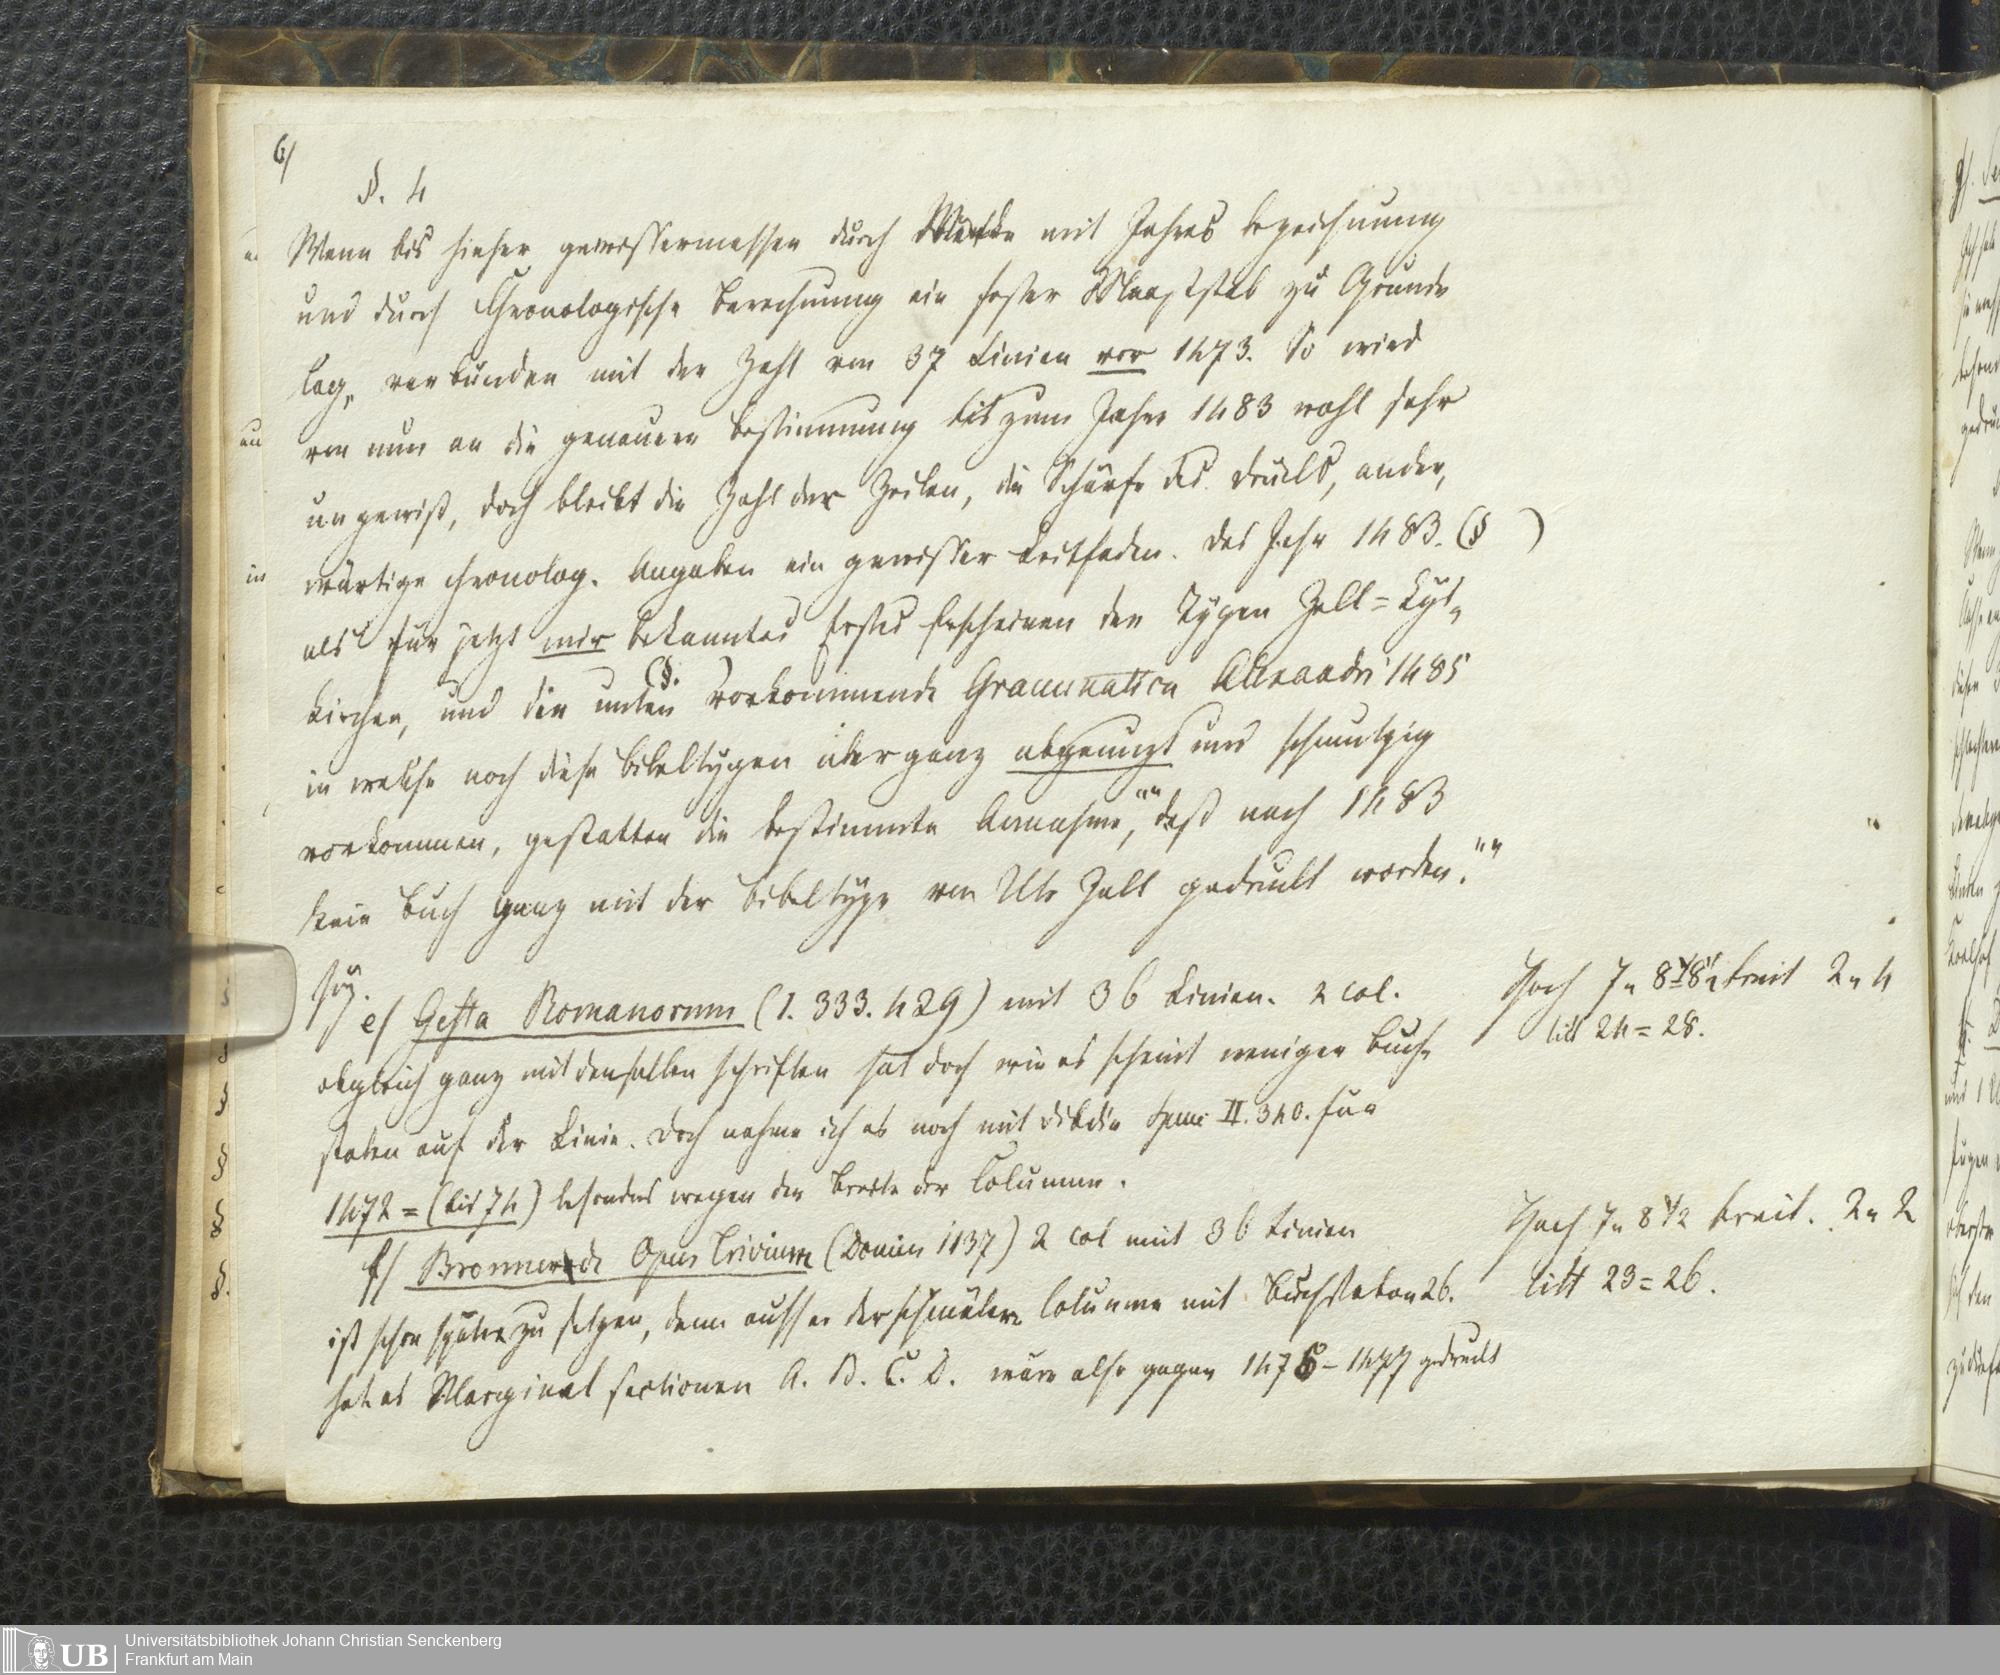 6/
§. 4
Wenn bis hieher gewissermassen durch Werke mit Jahres bezeichnung
und durch Chronologische Berechnung ein fester Maaßstab zu Grunde
lag, verbunden mit der Zahl von 37 Linien vor 1473. So wird
von nun an die genauere Bestimmung bis zum Jahre 1483 wohl sehr
ungewiß, doch bleibt die Zahl der Zeilen, die Schärfe des Drucks, ander,
wärtige chronolog. Angaben ein gewisser Leitfaden. Das Jahr 1483. (§ )
als für jetzt mir bekanntes Erstes Erscheinen der Typen Zell=Lys,
kirchen, und die unten (§. ) vorkommende Grammatica Alexandri 1485
in welche noch diese Bibeltypen aber ganz abgenuzt und schmutzig
vorkommen, gestatten die bestimmte Annahme, "" daß nach 1483
kein Buch ganz mit der Bibeltype von Ulr Zell gedruckt worden.""
e/ Gesta Romanorum (1. 333. 429) mit 36 Linien. 2 col.
Hoch 7" 8 breit 2" 4
litt 24=28.
obgleich ganz mit denselben Schriften hat doch wie es scheint weniger Buch,
staben auf der Linie. Doch nehme ich es noch mit Dibdin Spenc II. 340. für
1472=(bis 74) besonders wegen der Breite der Columnen.
f/ Bromyerde Opus Trivium (Domin 1137) 2 col mit 36 Linien
Hoch 7" 8 1/2 breit. 2" 2
ist schon später zu setzen, denn ausser der schmälern Columne mit Buchstaben 26.
litt 23=26.
hat es Marginal sectionen A. B. C. D. wäre also gegen 1476-1477 gedruckt
an
in
§
§
§
§.
Universitätsbibliothek Johann Christian Senckenberg
UB Frankfurt am Main